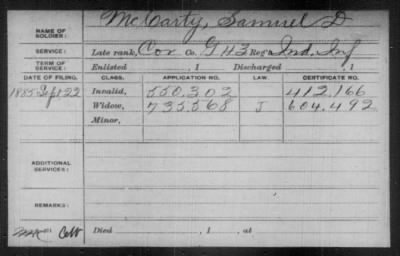 NAME OF SOLDIER: McCarty, Samuel D
SERVICE: Late rank, Cor Co. G 43 Reg't Ind. Inf
TERM OF SERVICE: Enlisted , 1 Discharged , 1
DATE OF FILING. CLASS. APPLICATION NO. LAW. CERTIFICATE NO.
1885 Sept 22 Invalid, 550.302 412.166
Widow, 735.568 J 604.492
Minor,
ADDITIONAL SERVICES:
REMARKS:
Died , 1 , at